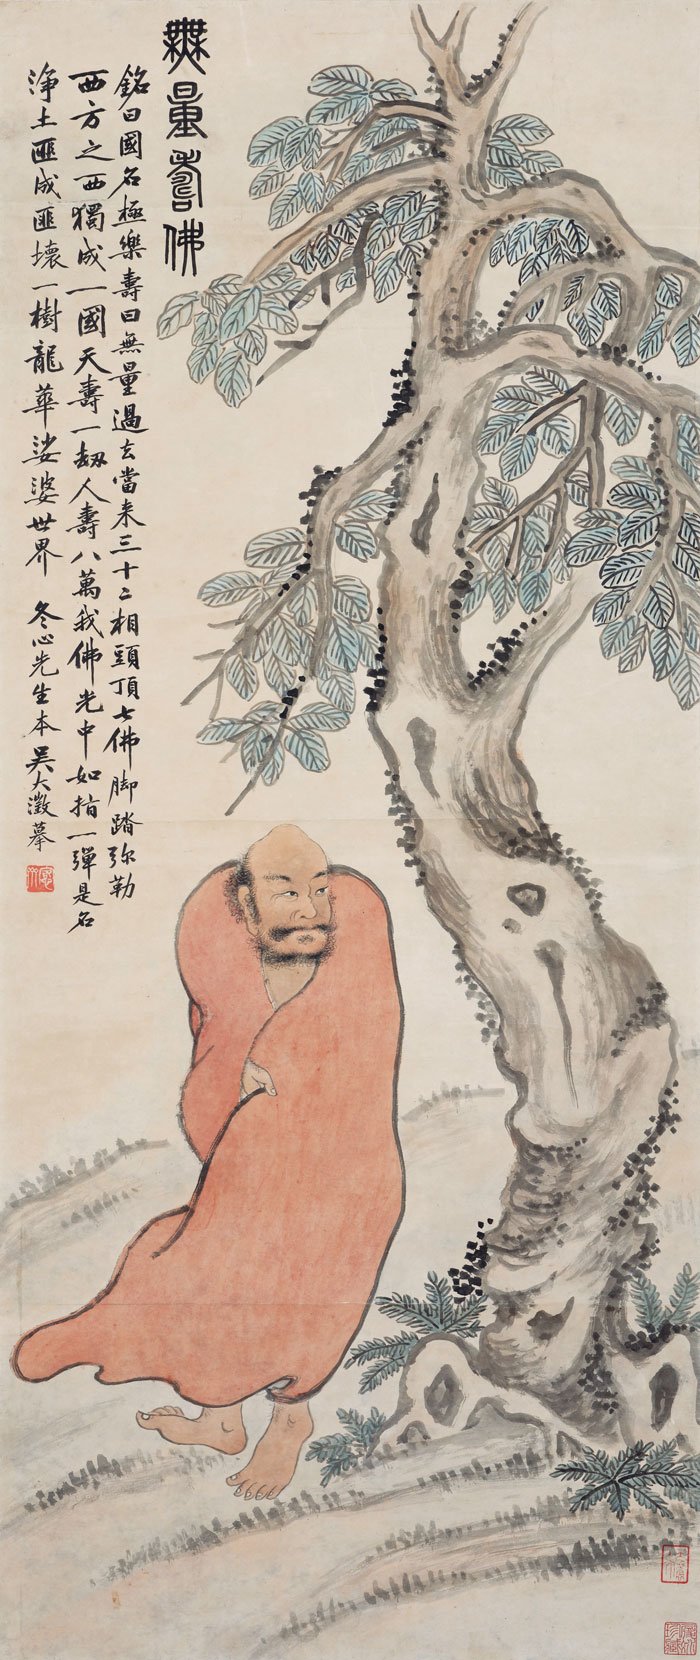 無量壽佛
銘曰國名極樂壽曰無量過去當来三十二相頭頂七佛脚踏弥勒
西方之西獨成一國天壽一劫人壽八萬我佛光中如指一彈是名
淨土匪成匪壞一樹龍華娑婆世界 冬心先生本吳大澂摹